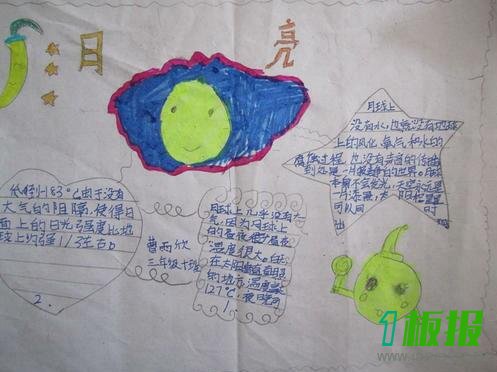 月 亮
月球上
没有水,也就没有地球
上的风化,氧气和水的
腐蚀过程,也没有声音的传播
到处是一片寂静的世界。月球
本身不会发光,天空永远是
一片
可以同时
月球上几乎没有大
气,因为月球上
的昼夜
温度很大。白天
在太阳垂直直照
的地方温度
127℃,夜晚可
1
低到-183℃由于没有
大气的阻隔,使得日
面上的日光强度比地
球上约强1/3左右。
2.
曹西欣
三年级十班
1板报